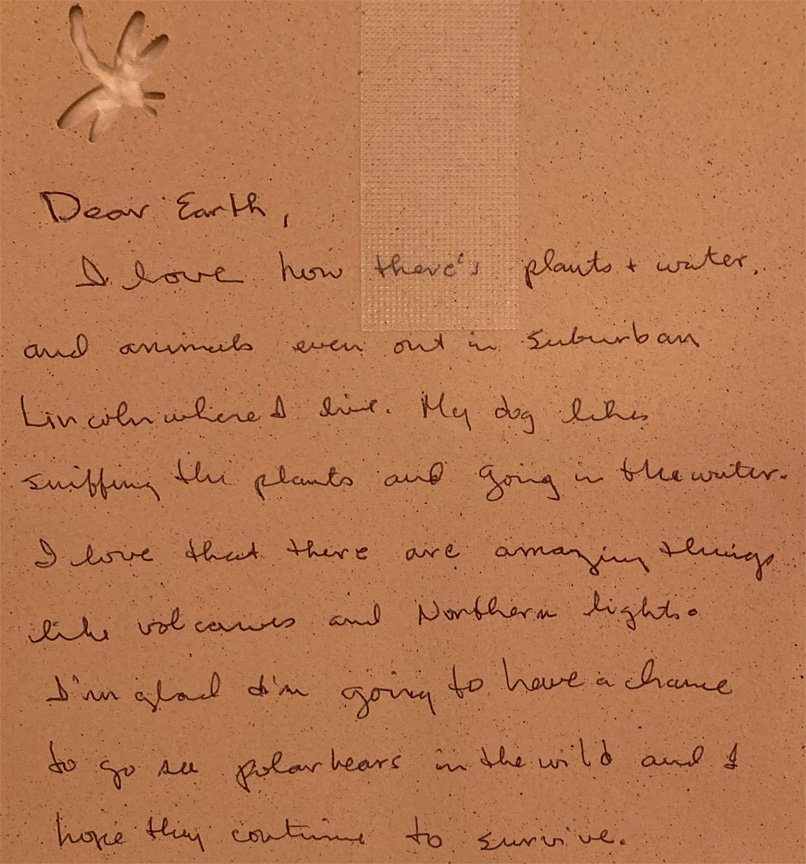 Dear Earth,
I love how there's plants + water,
and animals even out in suburban
Lincoln where I live. My dog likes
sniffing the plants and going in the water.
I love that there are amazing things
like volcanoes and Northern lights.
I'm glad I'm going to have a chance
to go see polar bears in the wild and I
hope they continue to survive.